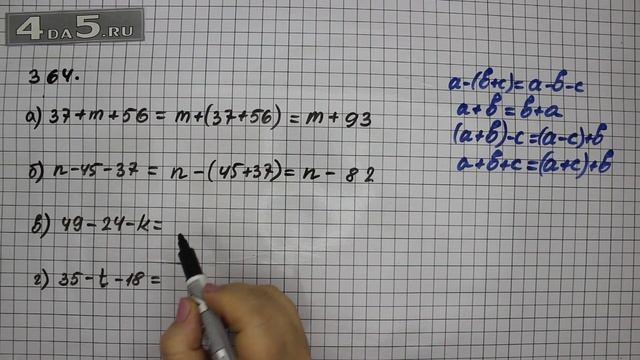 4DA5.RU
364.
а) 37+m+56 = m+(37+56) = m+93
б) n-45-37 = n-(45+37) = n-82
в) 49-24-k=
г) 35-t-18=
a-(b+c)=a-b-c
a+b=b+a
(a+b)-c=(a-c)+b
a+b+c=(a+c)+b